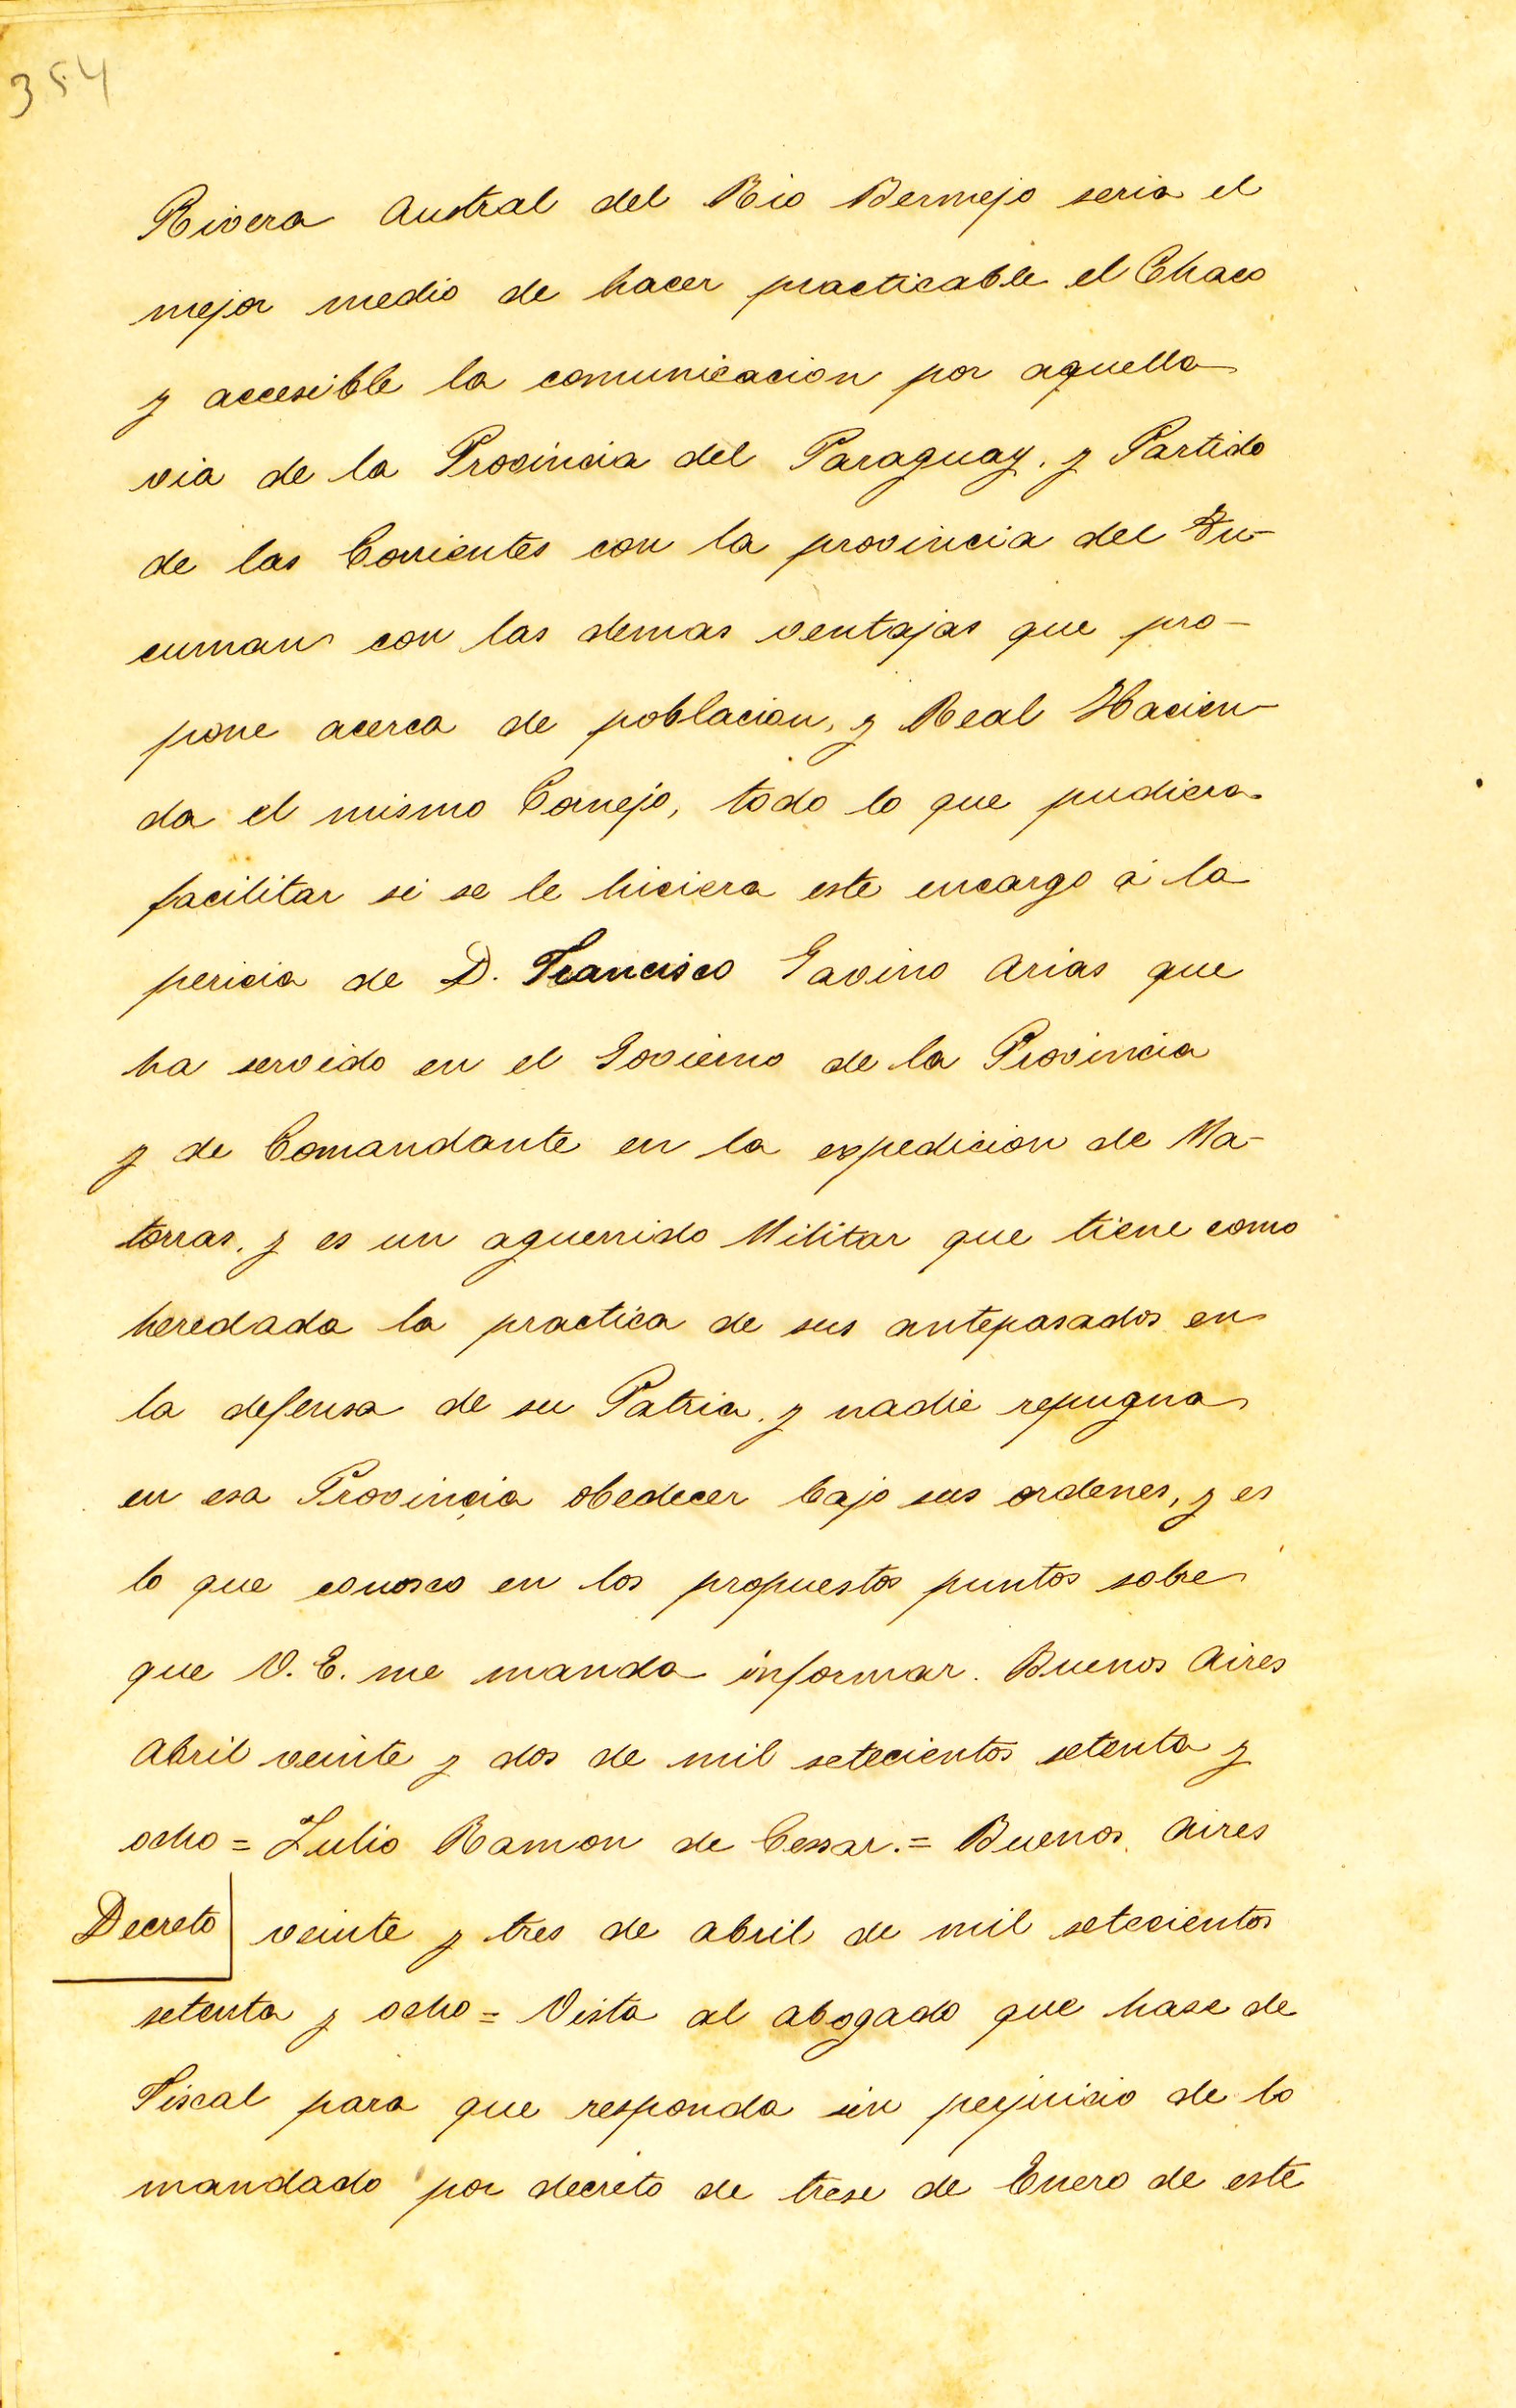 354
Rivera Austral del Rio Bermejo seria el
mejor medio de hacer practicable el Chaco
y accesible la comunicacion por aquella
via de la Provincia del Paraguay, y Partido
de las Corrientes con la provincia del Tu-
cuman con las demas ventajas que pro-
pone acerca de poblacion, y Real Hacien-
da el mismo Cornejo, todo lo que pudiera
facilitar si se le hiciera este encargo á la
pericia de D. Francisco Gavino Arias que
ha servido en el Govierno de la Provincia
y de Comandante en la expedicion de Ma-
torras, y es un aguerrido Militar que tiene como
heredada la practica de sus antepasados en
la defensa de su Patria, y nadie repugna
en esa Provincia obedecer bajo sus ordenes, y es
lo que conosco en los propuestos puntos sobre
que V. E. me manda informar. Buenos Aires
Abril veinte y dos de mil setecientos setenta y
ocho = Julio Ramon de Cessar. = Buenos Aires
Decreto veinte y tres de Abril de mil setecientos
setenta y ocho = Vista al Abogado que hase de
Fiscal para que responda sin perjuicio de lo
mandado por decreto de trese de Enero de este